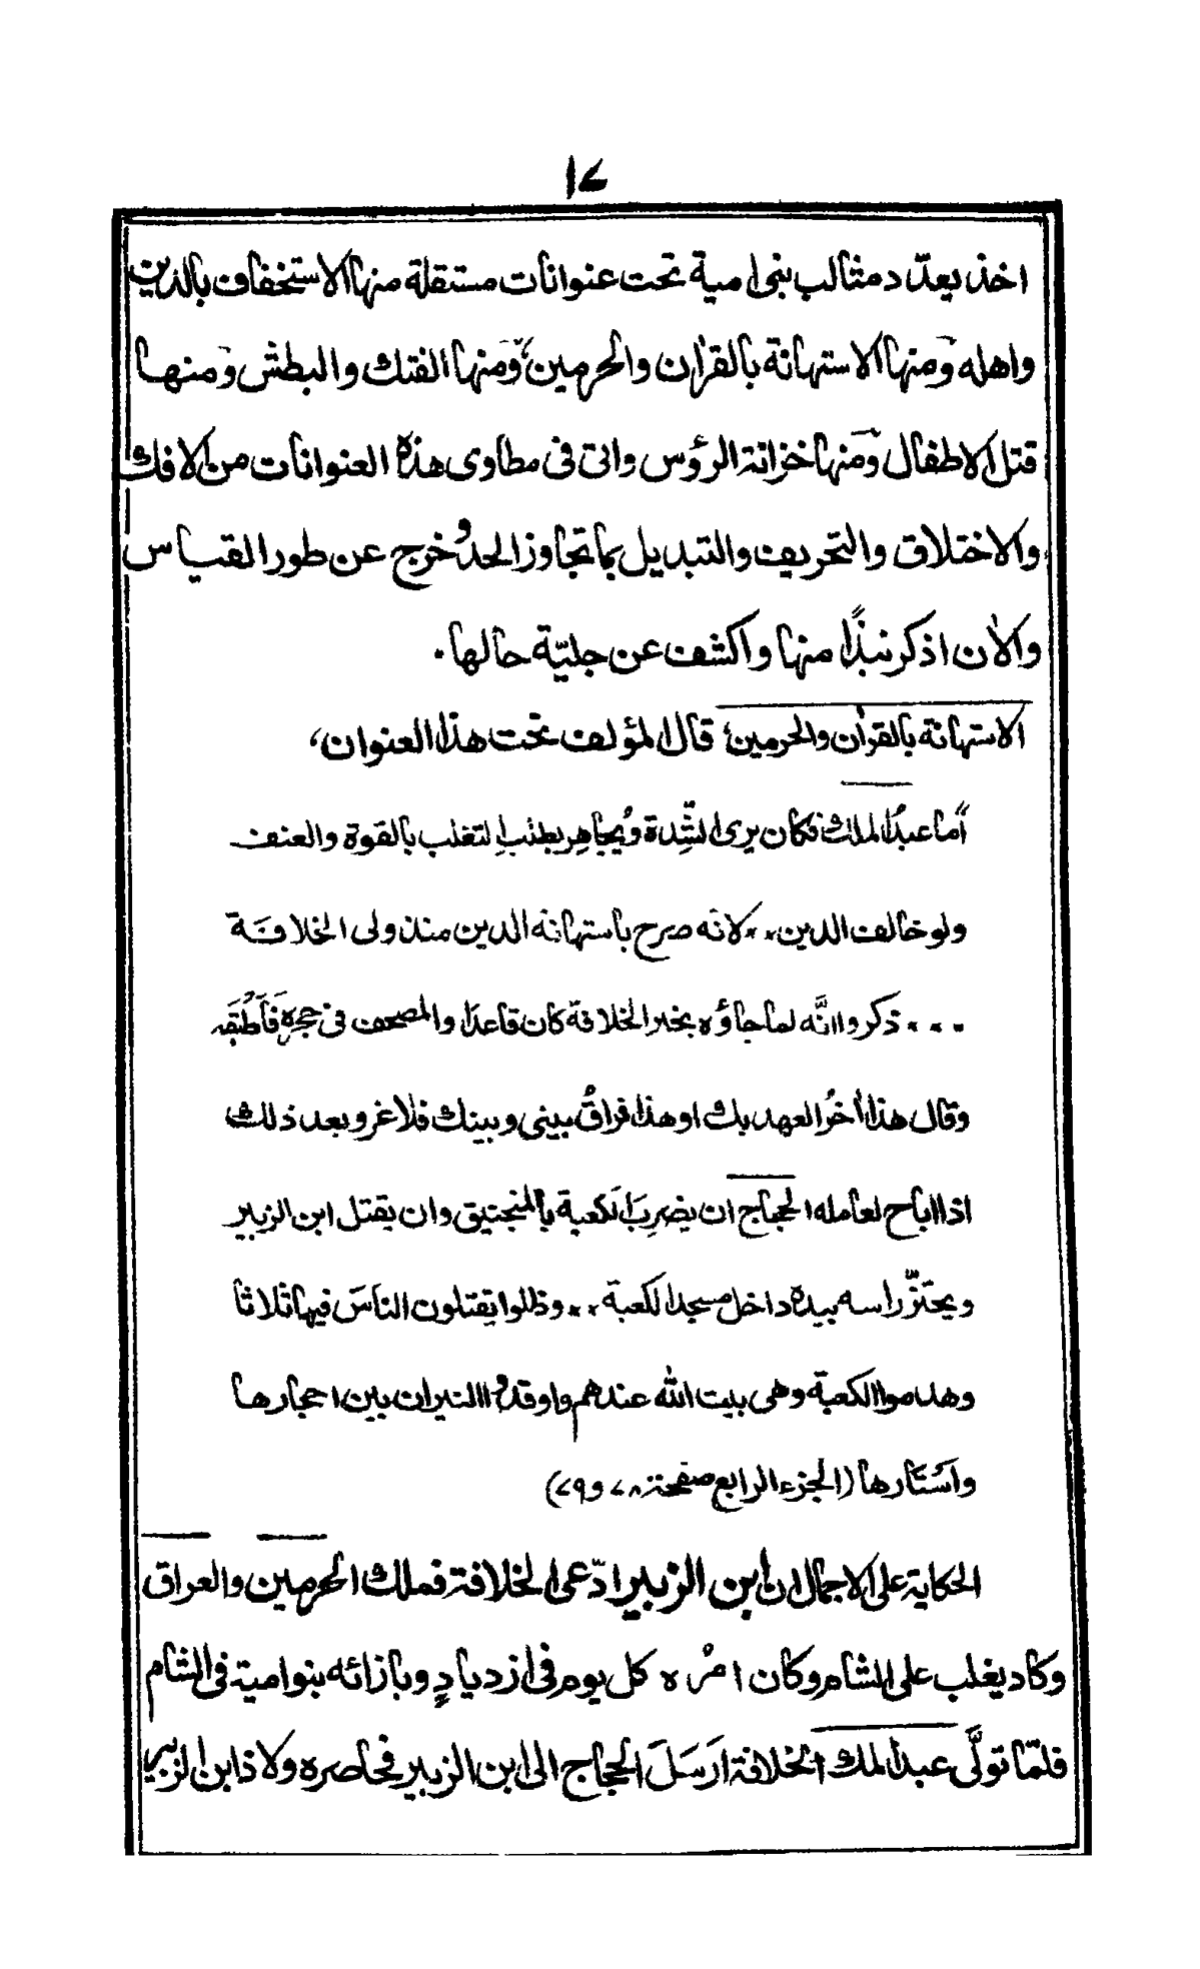 ١٧
اخذ يعدّد مثالب بني امية تحت عنوانات مستقلة منها الاستخفاف بالدين
واهله ومنها الاستهانة بالقرآن والحرمين، ومنها الفتك والبطش ومنها
قتل الاطفال ومنها خزانة الرؤس واتى فى مطاوى هذه العنوانات من الافك
والاختلاق والتحريف والتبديل بما تجاوز الحد وخرج عن طور القياس
والآن اذكر نبذًا منها واكشف عن جليّة حالها.
الاستهانة بالقرآن والحرمين؛ قال المؤلف تحت هذا العنوان،
"أما عبدُ الملك فكان يرى الشِّدة ويُجاهِر بطلبِ التغلب بالقوة والعنف
ولو خالف الدين ** لانه صرح باستهانة الدين منذ ولى الخلافة
*** ذكروا انَّه لما جاؤه بخبر الخلافة كان قاعدا والمصحف فى حجرِهِ فَأَطْبَقَه
وقال هذا اٰخرُ العهد بك او هذا فراقُ بينى وبينك فلا غرو بعد ذلك
اذا اباح لعامله الحجاج ان يضرِبَ الكعبة بالمنجنيق وان يقتل ابن الزبير
ويحتزّ راسه بيده داخل مسجد الكعبة ** وظلوا يقتلون الناسَ فيها ثلاثا
وهدموا الكعبة وهى بيت الله عندهم واوقدوا النيران بين احجارها
وأستارها (الجزء الرابع صفحة ٧٨ و٧٩)
الحكاية على الاجمال ان ابن الزبير ادّعى الخلافة فملك الحرمين والعراق
وكاد يغلب على الشام وكان امرُه كل يوم فى ازديادٍ وبازائه بنو امية فى الشام
فلمّا تولَّى عبد الملك الخلافة ارَسَلَ الحجاج الى ابن الزبير فحاصره ولاذ ابن الزبير